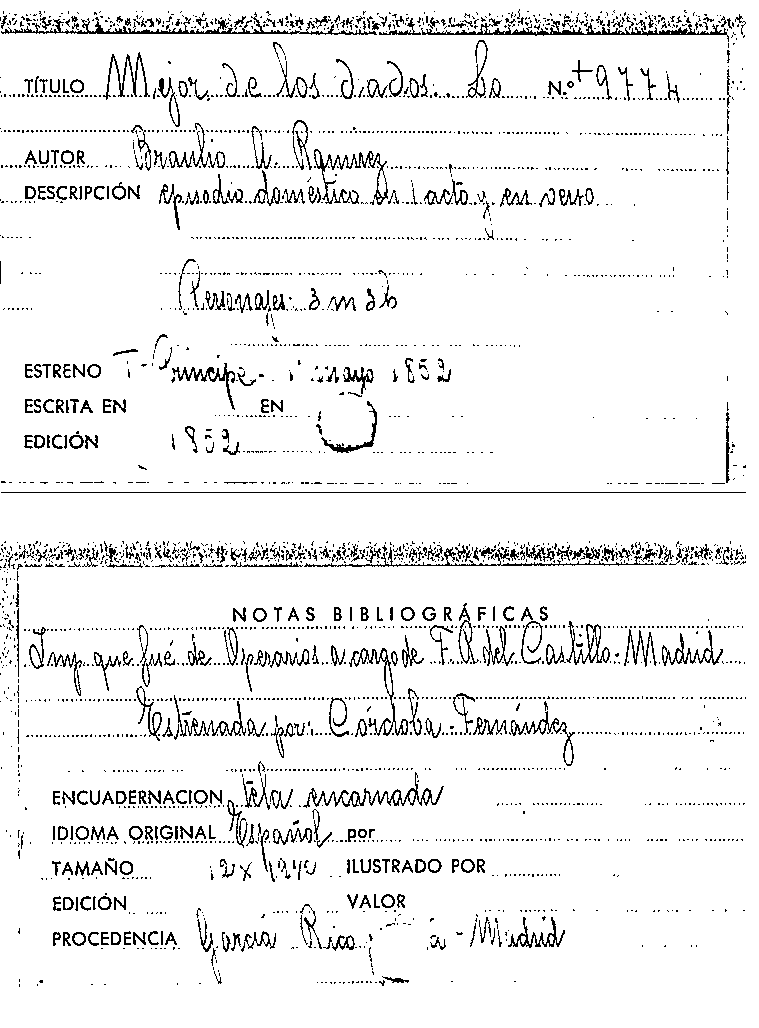 TÍTULO Mejor de los dados. Lo N.º +9774
AUTOR Braulio A. Ramirez
DESCRIPCIÓN episodio doméstico en 1 acto y en verso
Personajes: 3 m 3 h
ESTRENO T- Príncipe - 1º mayo 1852
ESCRITA EN EN
EDICIÓN 1852
NOTAS BIBLIOGRÁFICAS
Imp que fué de Operarios a cargo de F. R. del Castillo - Madrid
Estrenada por: Córdoba - Fernández
ENCUADERNACION tela encarnada
IDIOMA ORIGINAL Español por
TAMAÑO 12 x ILUSTRADO POR
EDICIÓN VALOR
PROCEDENCIA García Rico y - Madrid